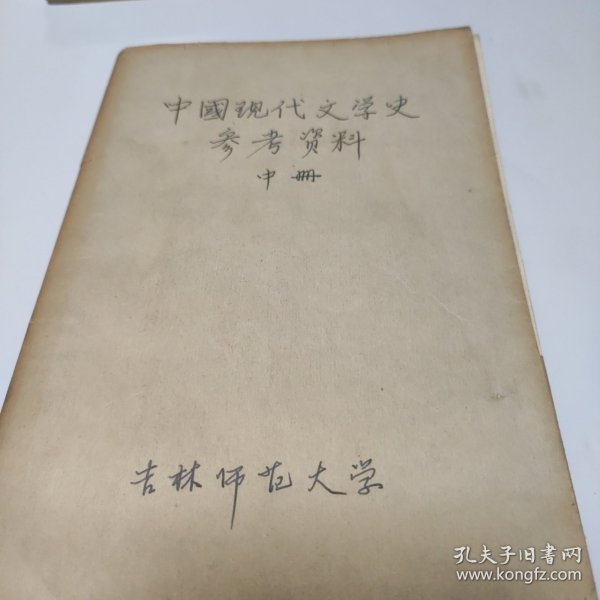 中國现代文学史
参考资料
中册
吉林师范大学
孔夫子旧书网
www.kongfz.com